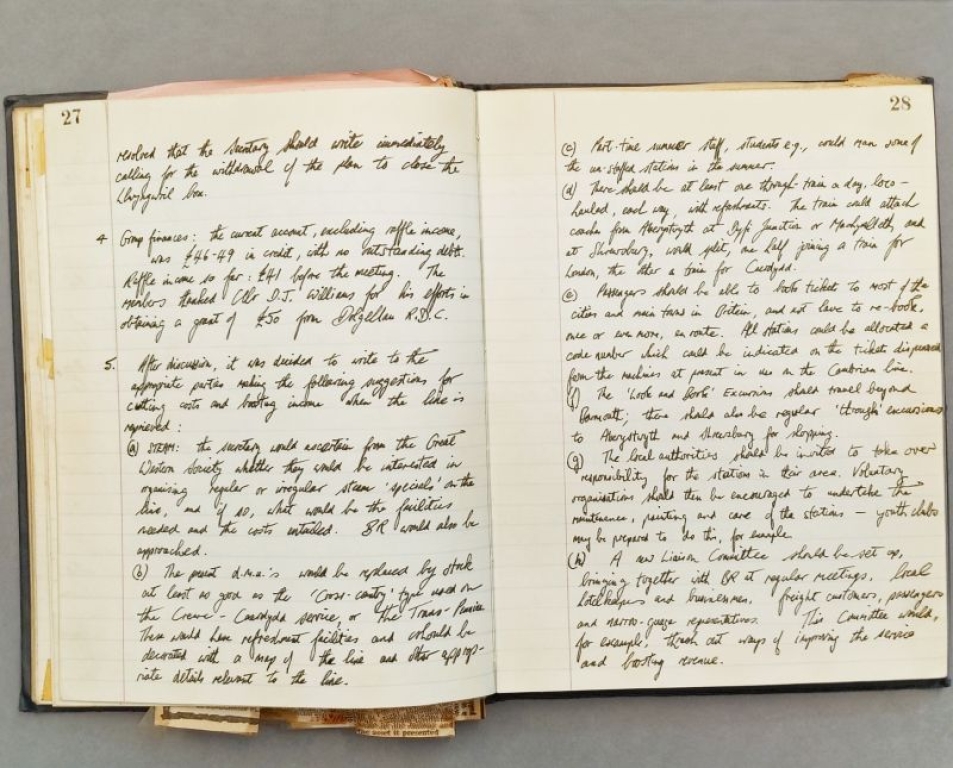 27
resolved that the Secretary should write immediately
calling for the withdrawal of the plan to close the
Llwyngwril box.
4 Group finances: the current account, excluding raffle income,
was £46-49 in credit, with no outstanding debts.
Raffle income so far: £41 before the meeting. The
members thanked Cllr D.J. Williams for his efforts in
obtaining a grant of £50 from Dolgellau R.D.C.
5. After discussion, it was decided to write to the
appropriate parties making the following suggestions for
cutting costs and boosting income when the line is
reprieved:
(a) STEAM: the secretary would ascertain from the Great
Western Society whether they would be interested in
organising regular or irregular steam 'specials' on the
line, and if so, what would be the facilities
needed and the costs entailed. BR would also be
approached.
(b) The present d.m.u.'s would be replaced by stock
at least as good as the 'Cross-country' type used on
the Crewe-Caerdydd service, or the Trans-Pennine.
These would have refreshment facilities and should be
decorated with a map of the line and other approp-
riate details relevant to the line.
28
(c) Part-time summer staff, students e.g., could man some of
the un-staffed stations in the summer.
(d) There should be at least one through-train a day, loco-
hauled, each way, with refreshments. The train could attach
coaches from Aberystwyth at Dyfi Junction or Machynlleth, and
at Shrewsbury, would split, one half joining a train for
London, the other a train for Caerdydd.
(e) Passengers should be able to book tickets to most of the
cities and main towns in Britain, and not have to re-book,
once or even more, en route. All stations could be allocated a
code number which could be indicated on the tickets dispensed
from the machines at present in use on the Cambrian line.
(f) The 'Look and Book' Excursions should travel beyond
Barmouth; there should also be regular 'through' excursions
to Aberystwyth and Shrewsbury for shopping.
(g) The local authorities should be invited to take over
responsibility for the stations in their area. Voluntary
organisations should then be encouraged to undertake the
maintenance, painting and care of the stations — youth clubs
may be prepared to do this, for example.
(h) A new Liaison Committee should be set up,
bringing together with BR at regular meetings, local
hotelkeepers and businessmen, freight customers, passengers
and narrow-gauge representatives. This Committee would,
for example, thrash out ways of improving the service
and boosting revenue.
the asset is presented